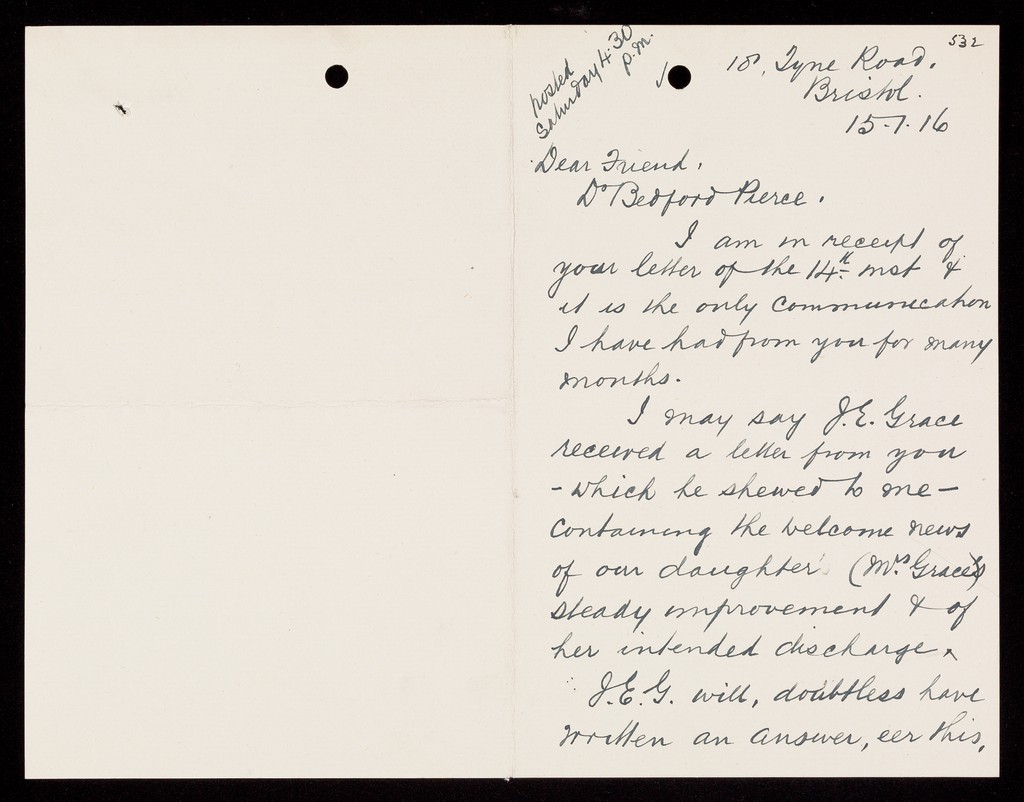 532
posted
Saturday 4.30
p.m.
18, Tyne Road,
Bristol.
15.7.16
Dear Friend,
Dr Bedford Pierce,
I am in receipt of
your letter of the 14th inst &
it is the only communication
I have had from you for many
months.
I may say J.E. Grace
received a letter from you
- which he shewed to me -
containing the welcome news
of our daughter's (Mrs Grace's)
steady improvement & of
her intended discharge.
J.E.G. will, doubtless have
written an answer, eer this,